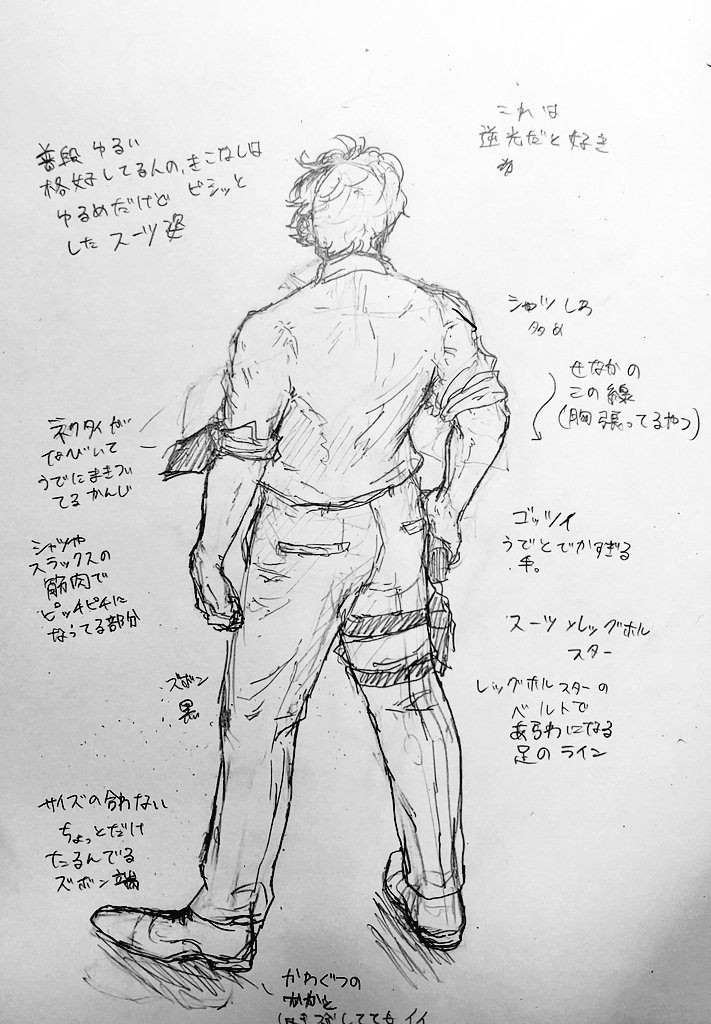 普段ゆるい
格好してるんの、きこなしは
ゆるめだけど ビシッと
した スーツ姿
これは
逆光だと好き
シャツしろ
多め
せなかの
この線
(胸張ってるやつ)
ネクタイが
なびいて
うでにまきつい
てるかんじ
シャツや
スラックスの
筋肉で
ピッチピチに
なってる部分
ゴッツイ
うでとでかすぎる
手。
スーツ×レッグホル
スター
レッグホルスターの
ベルトで
あらわになる
足のライン
ズボン
黒
サイズの合わない
ちょっとだけ
たるんでる
ズボン端
かわぐつの
かかと
はきつぶしててもイイ